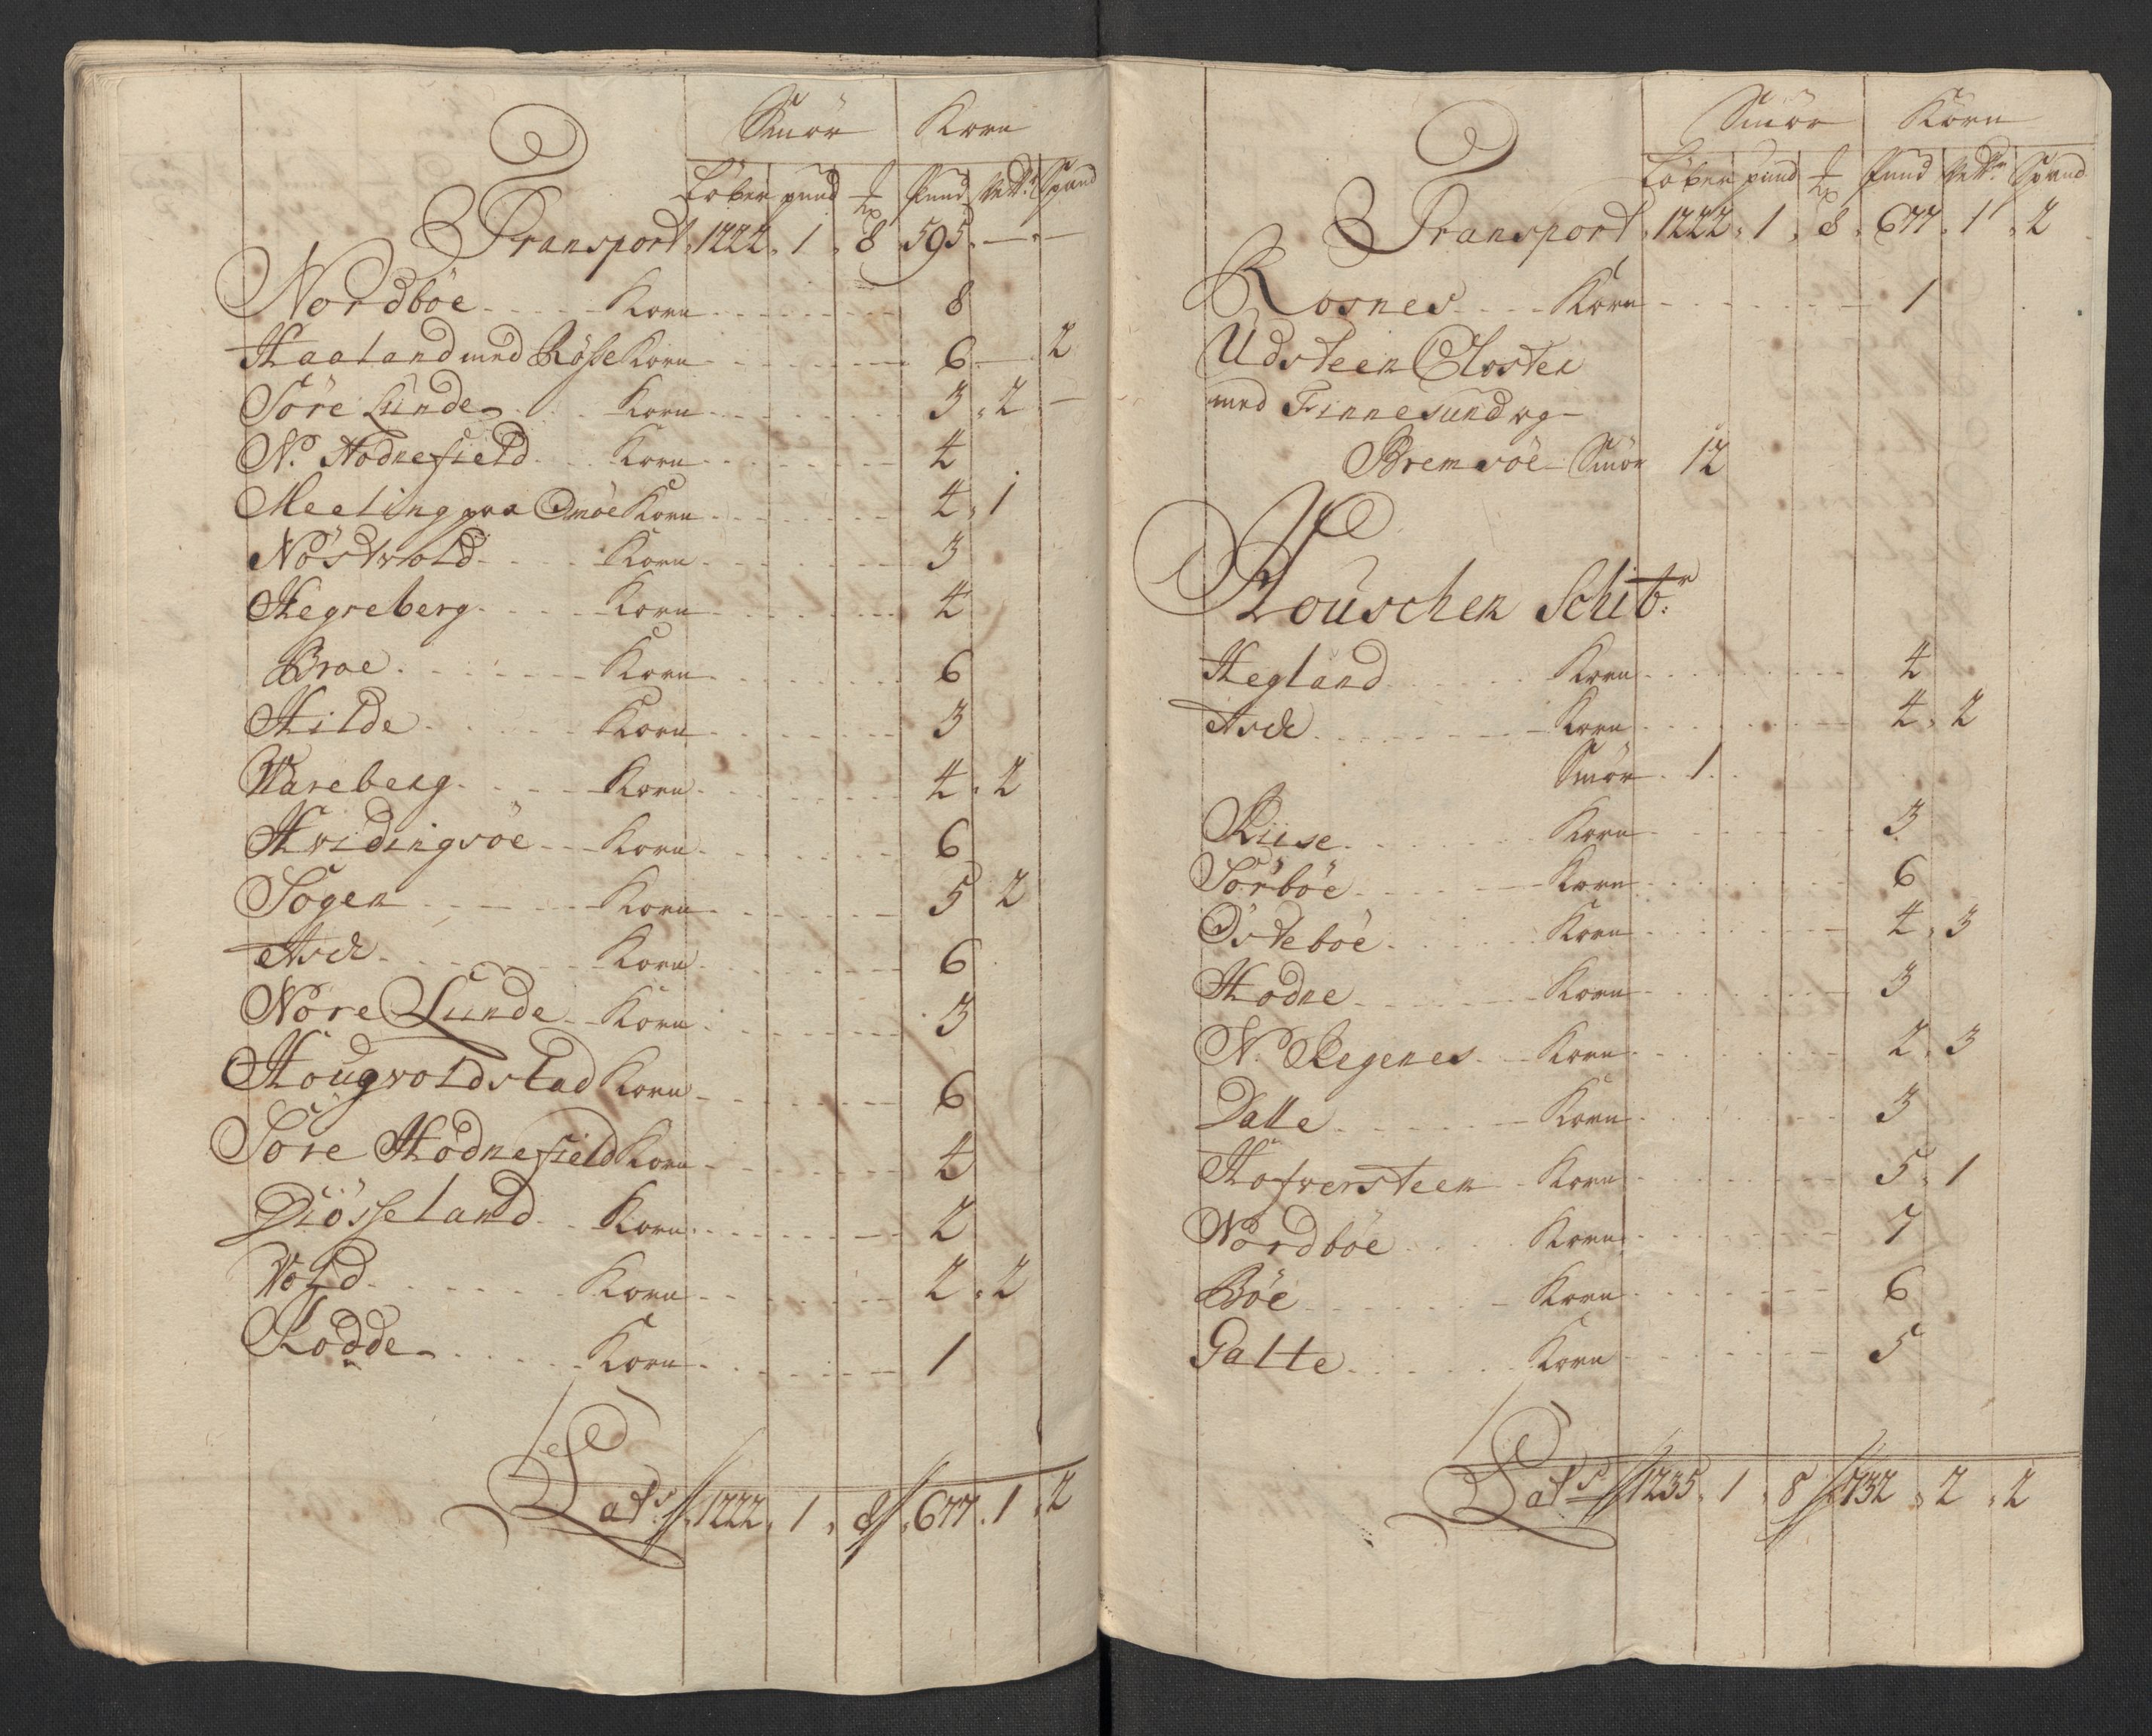 Smör Korn
Löber pund ℔ Pund Vettr Spand
Transport 1222 1 8 595 — —
Nordböe Korn 8
Haaland med Rösse Korn 6 — 2
Söre Lunde Korn 3 2 —
N. Hodnefield Korn 4
Meeling paa Omöe Korn 4 1
Nöstvold Korn 3
Hegreberg Korn 4
Broe Korn 6
Hilde Korn 3
Vareberg Korn 4 2
Hvidingsöe Korn 6
Sogen Korn 5 2
Ask Korn 6
Nore Lunde Korn 3
Hougvoldstad Korn 6
Söre Hodnefield Korn 4
Diösseland Korn 2
Vold Korn 2 2
Kodde Korn 1
Lats 1222 1 8 677 1 2
Smör Korn
Löber pund ℔ Pund Vettr Spand
Transport 1222 1 8 677 1 2
Rosnes Korn 1
Udsteen Closter
med Finnesund og
Bremsöe Smör 12
Houschen Schibr:
Hegland Korn 4
Ask Korn 4 2
Smör 1
Riise Korn 3
Sörböe Korn 6
Östeböe Korn 4 3
Hodne Korn 3
N. Regenes Korn 2 3
Dalle Korn 3
Hofversteen Korn 5 1
Nordböe Korn 7
Böe Korn 6
Galte Korn 5
Lats 1235 1 8 732 2 2